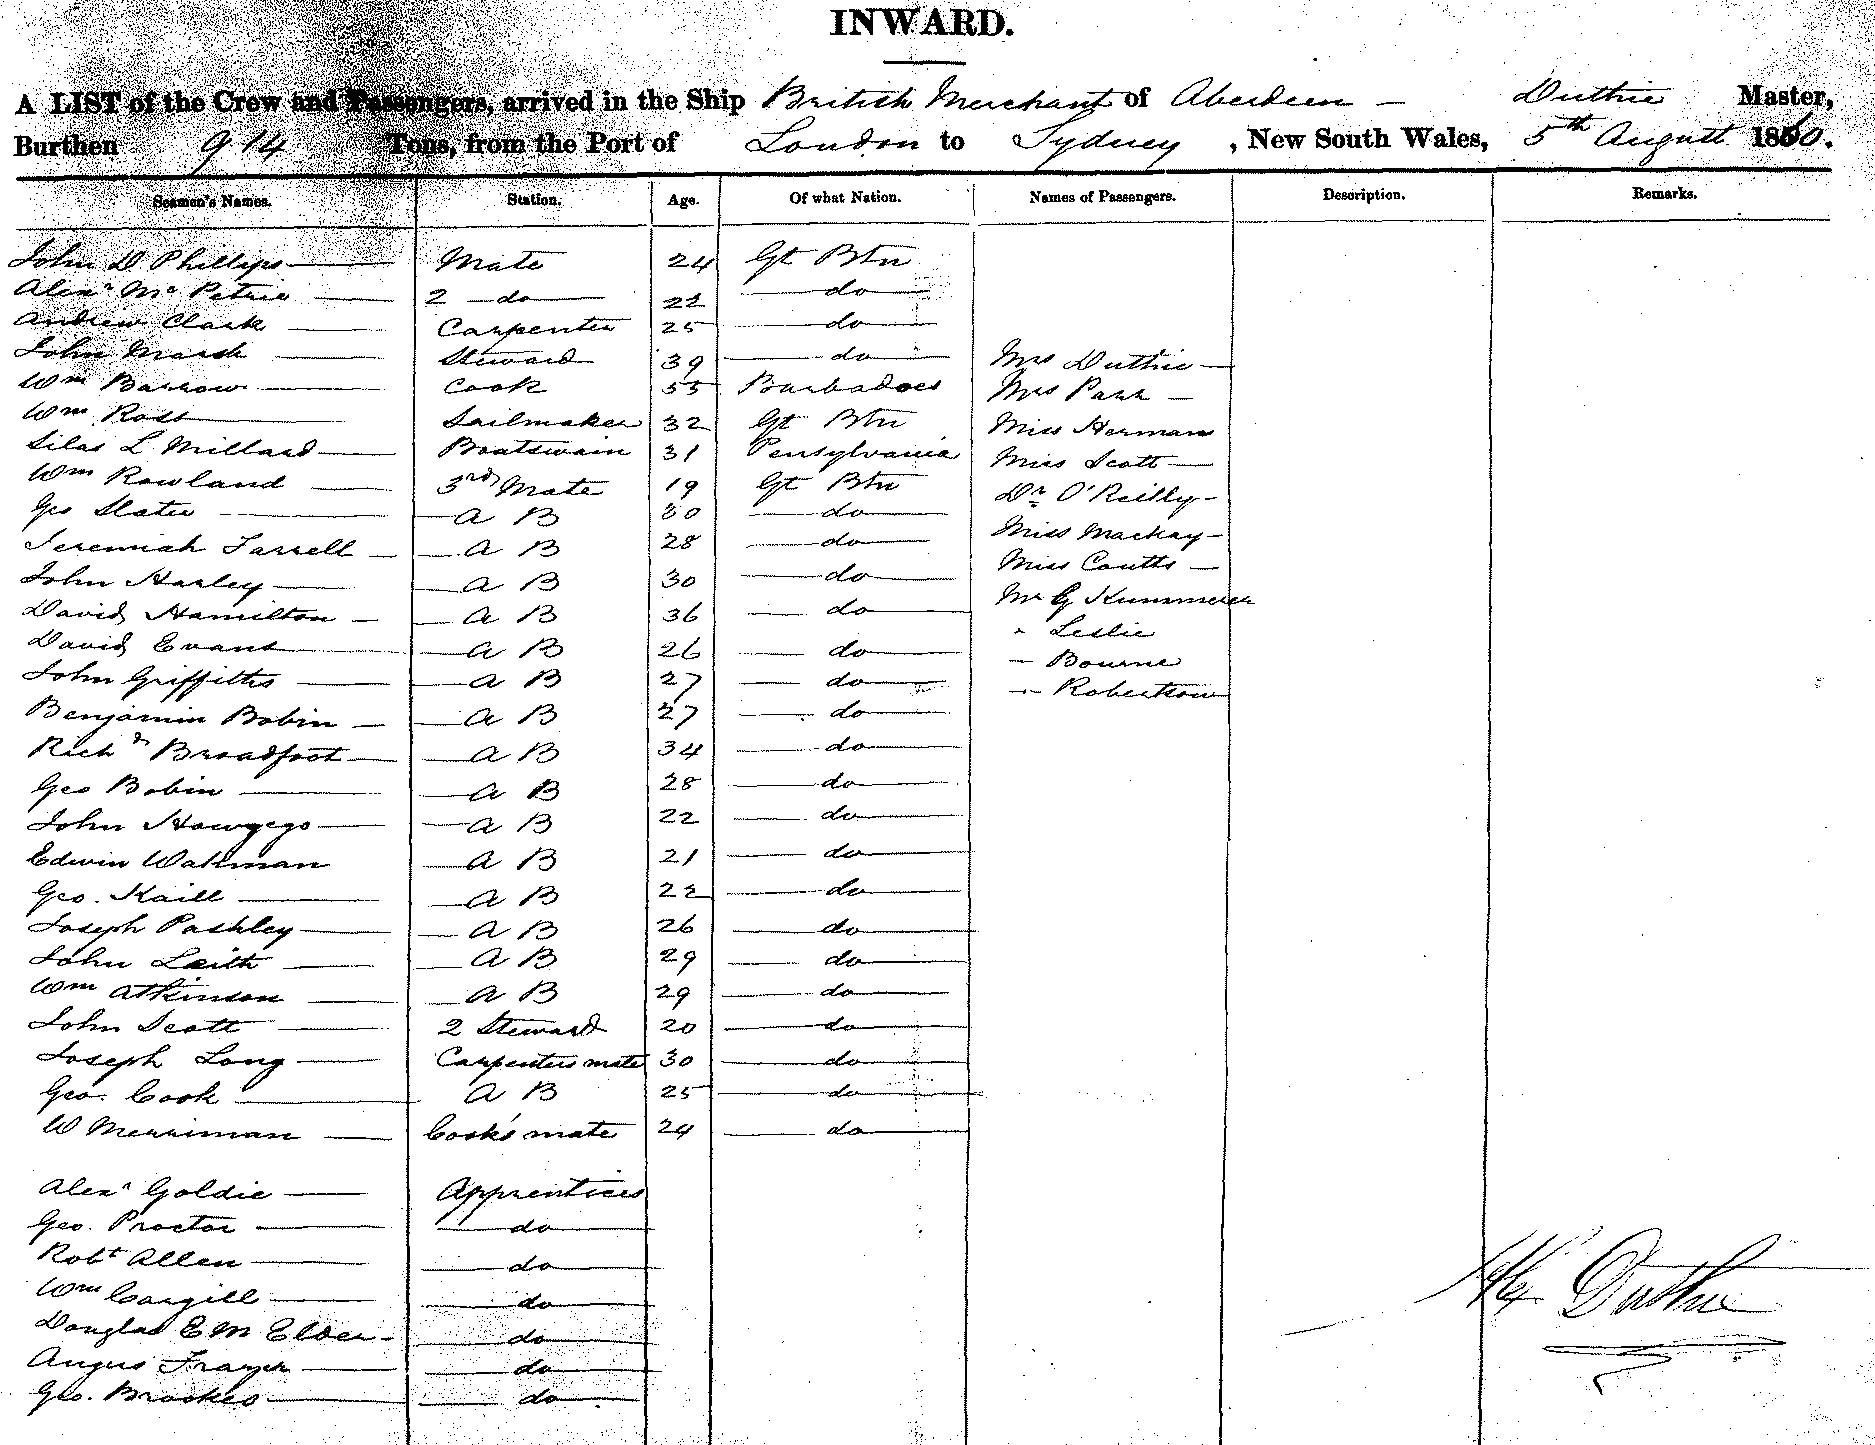 INWARD.
A LIST of the Crew and Passengers, arrived in the Ship British Merchant of Aberdeen — Duthie Master,
Burthen 914 Tons, from the Port of London to Sydney, New South Wales, 5th August 1860.
Seamen's Names. Station. Age. Of what Nation. Names of Passengers. Description. Remarks.
John D Phillips Mate 24 Gt Btn
Alexr Mc Petrie 2 do 22 do
Andrew Clark Carpenter 25 do
John Marsh Steward 39 do Mrs Duthie
Wm Barrow Cook 55 Barbadoes Mrs Parr
Wm Ross Sailmaker 32 Gt Btn Miss Herman
Silas L Millard Boatswain 31 Pensylvania Miss Scott
Wm Rowland 3rd Mate 19 Gt Btn Dr O'Reilly
Geo Slater A B 30 do Miss Mackay
Jeremiah Farrell A B 28 do Miss Coutts
John Harley A B 30 do Mr G Kummerer
David Hamilton A B 36 do " Leslie
David Evans A B 26 do " Bourne
John Griffiths A B 27 do " Robertson
Benjamin Bobin A B 27 do
Richd Broadfoot A B 34 do
Geo Bobin A B 28 do
John Howgego A B 22 do
Edwin Wakman A B 21 do
Geo. Kaill A B 22 do
Joseph Pashley A B 26 do
John Leith A B 29 do
Wm Atkinson A B 29 do
John Scott 2 Steward 20 do
Joseph Long Carpenters mate 30 do
Geo. Cook A B 25 do
W Merriman Cook's mate 24 do
Alexr Goldie Apprentices
Geo. Proctor do
Robt Allen do
Wm Cargill do
Douglas E M Elder do
Angus Frazer do
Geo. Brookes do
Alex Duthie